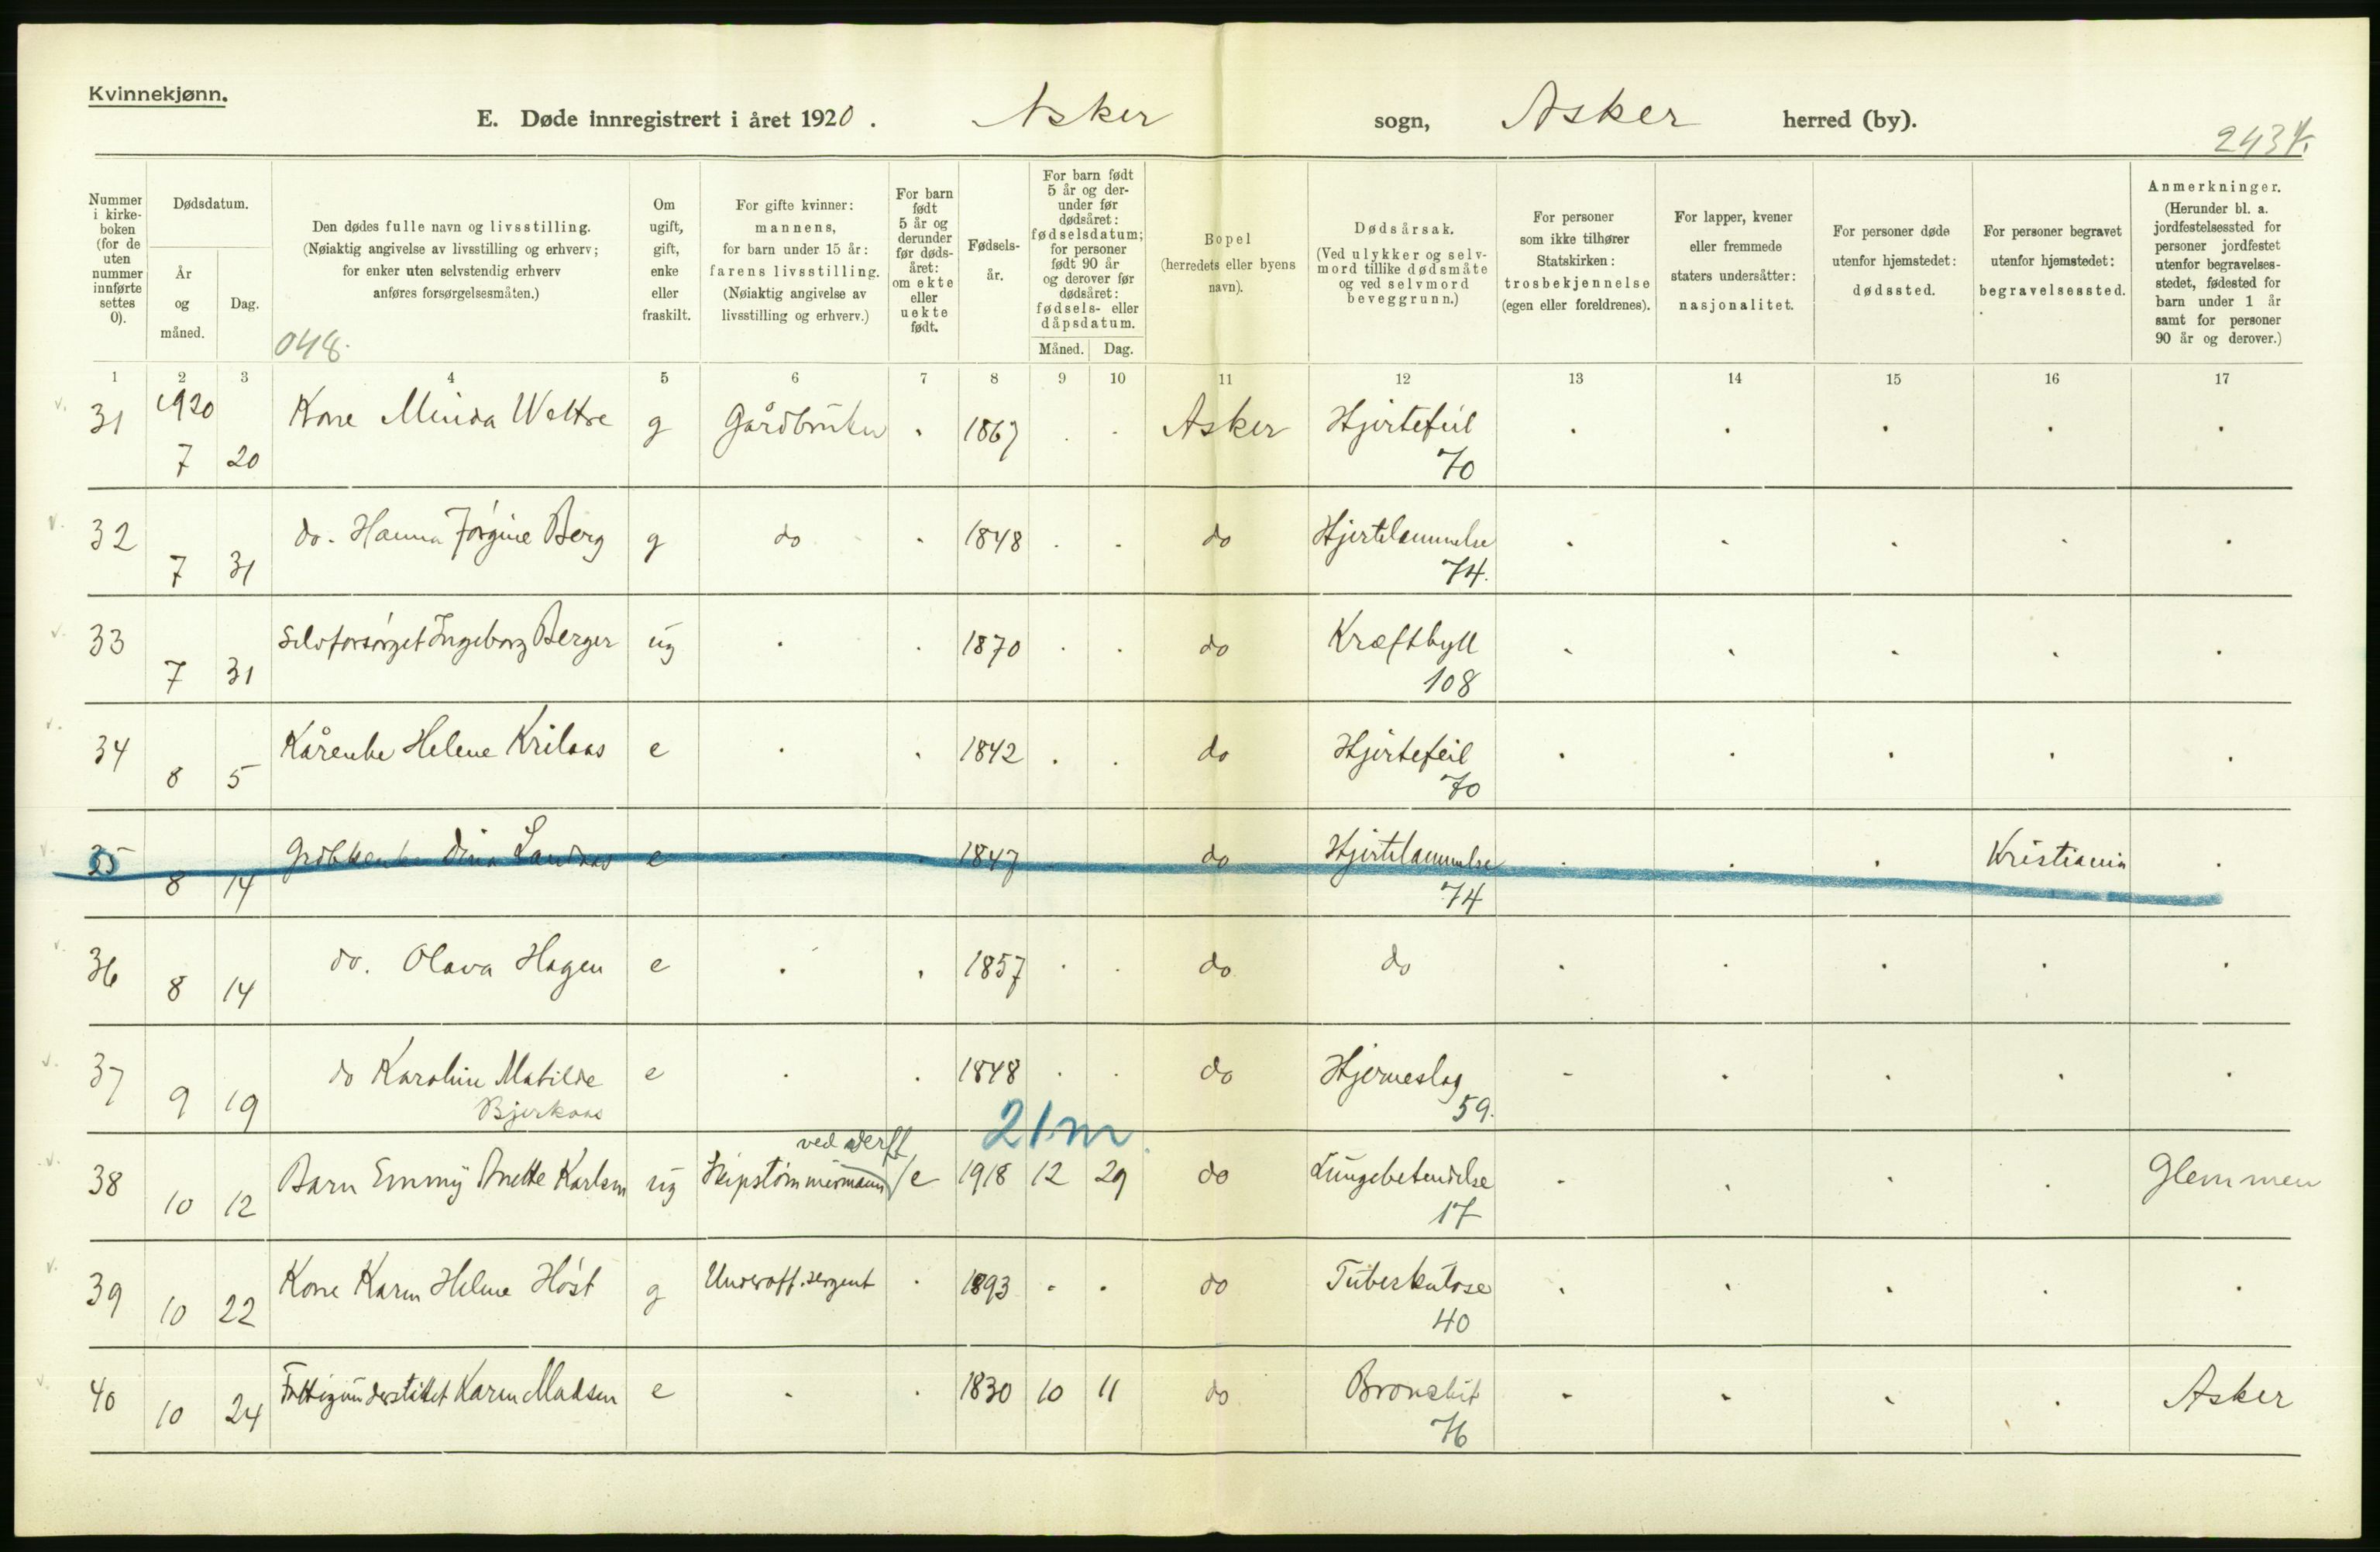 Kvinnekjønn.
E. Døde innregistrert i året 1920. Asker sogn, Asker herred (by).
243
Nummer i kirke-boken (for de uten nummer innførte settes 0).
Dødsdatum.
År og måned.
Dag.
Den dødes fulle navn og livsstilling.
(Nøiaktig angivelse av livsstilling og erhverv;
for enker uten selvstendig erhverv
anføres forsørgelsesmåten.)
048.
Om ugift, gift, enke eller fraskilt.
For gifte kvinner:
mannens,
for barn under 15 år:
farens livsstilling.
(Nøiaktig angivelse av
livsstilling og erhverv.)
For barn født 5 år og derunder før døds-året: om ekte eller uekte født.
Fødsels-år.
For barn født 5 år og der-under før dødsåret: fødselsdatum; for personer født 90 år og derover før dødsåret: fødsels- eller dåpsdatum.
Måned. Dag.
Bopel
(herredets eller byens
navn).
Dødsårsak.
(Ved ulykker og selv-
mord tillike dødsmåte
og ved selvmord
beveggrunn.)
For personer
som ikke tilhører
Statskirken:
trosbekjennelse
(egen eller foreldrenes).
For lapper, kvener
eller fremmede
staters undersåtter:
nasjonalitet.
For personer døde
utenfor hjemstedet:
dødssted.
For personer begravet
utenfor hjemstedet:
begravelsessted.
Anmerkninger.
(Herunder bl. a.
jordfestelsessted for
personer jordfestet
utenfor begravelses-
stedet, fødested for
barn under 1 år
samt for personer
90 år og derover.)
1 2 3 4 5 6 7 8 9 10 11 12 13 14 15 16 17
31 1920 7 20 Kone Minda Wettre g Gårdbruker . 1867 . . Asker Hjertefeil 70 . . . . .
32 7 31 do. Hanna Jørgine Berg g do . 1848 . . do Hjertelammelse 74. . . . . .
33 7 31 Selvforsørget Ingeborg Berger ug . . 1870 . . do Kræftbyll 108 . . . . .
34 8 5 Kårenke Helene e . . 1842 . . do Hjertefeil 70 . . . . .
35 8 14 Dina e . . 1847 do Hjertelammelse 74 . . . Kristiania .
36 8 14 do. Olava Hagen e . . 1857 . . do do . . . . .
37 9 19 do Karoline Matilde e . . 1848 . . do Hjerneslag 59. . . . . .
Bjerkaas
21 m
ved verft
38 10 12 Barn Emmy Anette Karlsen ug Skipstømmermann e 1918 12 29 do Lungebetendelse 17 . . . . Glemmen
39 10 22 Kone Karen Helene Høst g Underoff. sergent . 1893 . . do Tuberkulose 40 . . . . .
40 10 24 Fattigunderstøttet Karen Madsen e . . 1830 10 11 do Bronchit 76 . . . . Asker